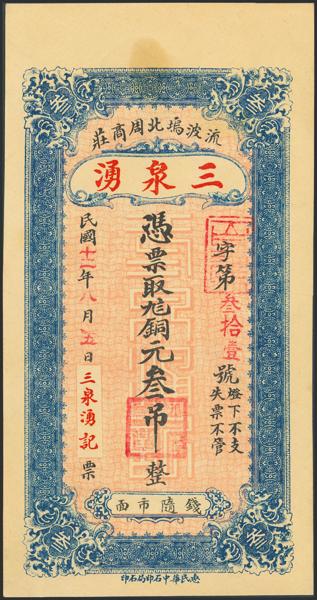 流波䃥北周商莊
三泉湧
字第叁拾壹號
燈下不支
失票不管
憑票取尨銅元叁吊整
民國十二年八月五日三泉湧記票
錢隨市面
叁
叁
叁
叁